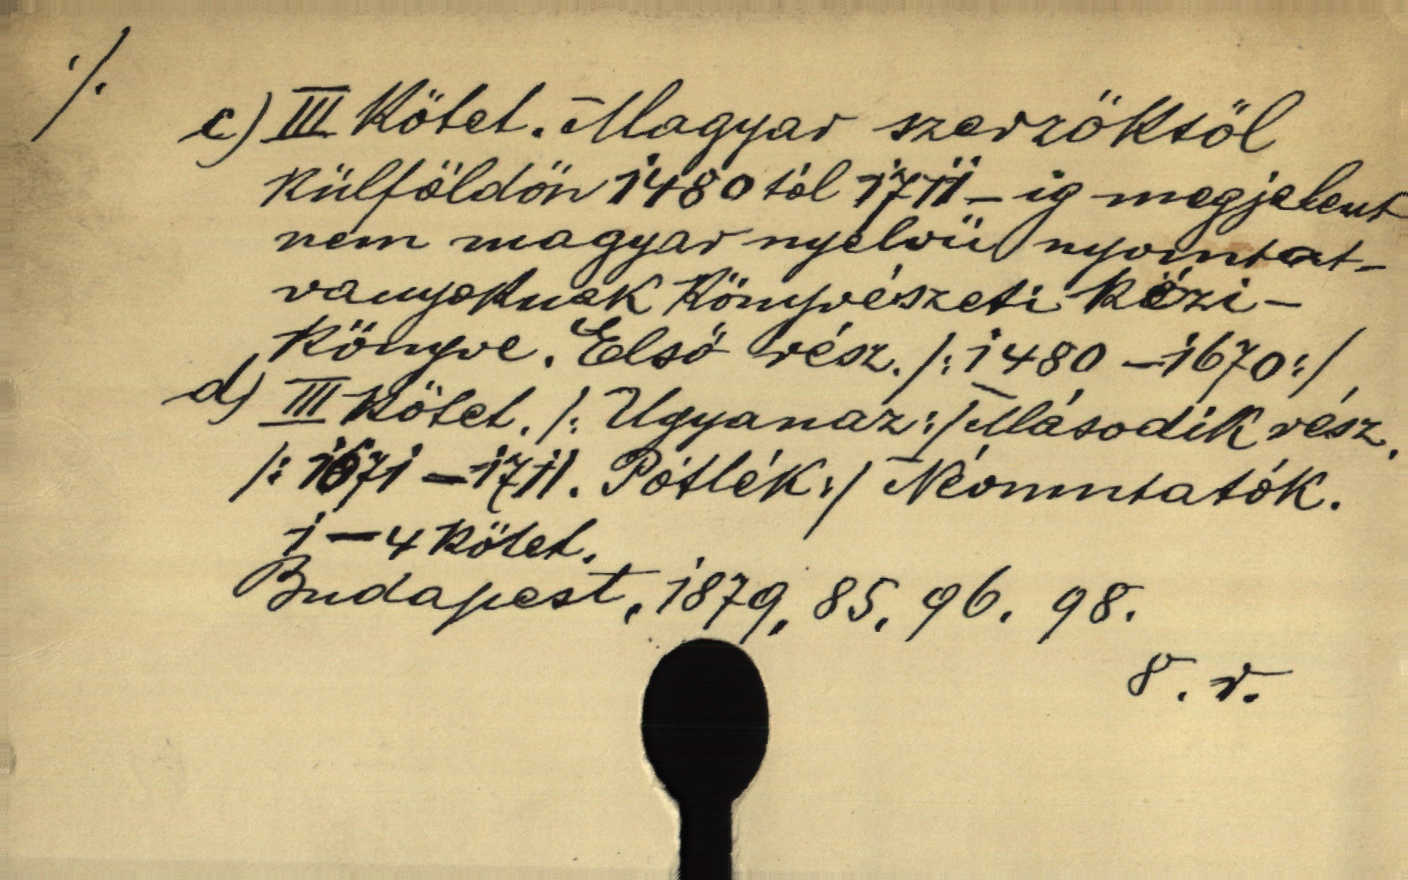 ./.
c) III Kötet. Magyar szerzőktöl
külföldön 1480 tól 1711-ig megjelent
nem magyar nyelvü nyomtat-
vanyoknak Könyvészeti kézi-
könyve. Első rész. /: 1480 - 1670 :/
d) III kötet. /: Ugyanaz :/ Második rész.
/: 1671 - 1711. Pótlék :/ Névmutatók.
1 - 4 kötet.
Budapest, 1879, 85, 96. 98.
8. r.